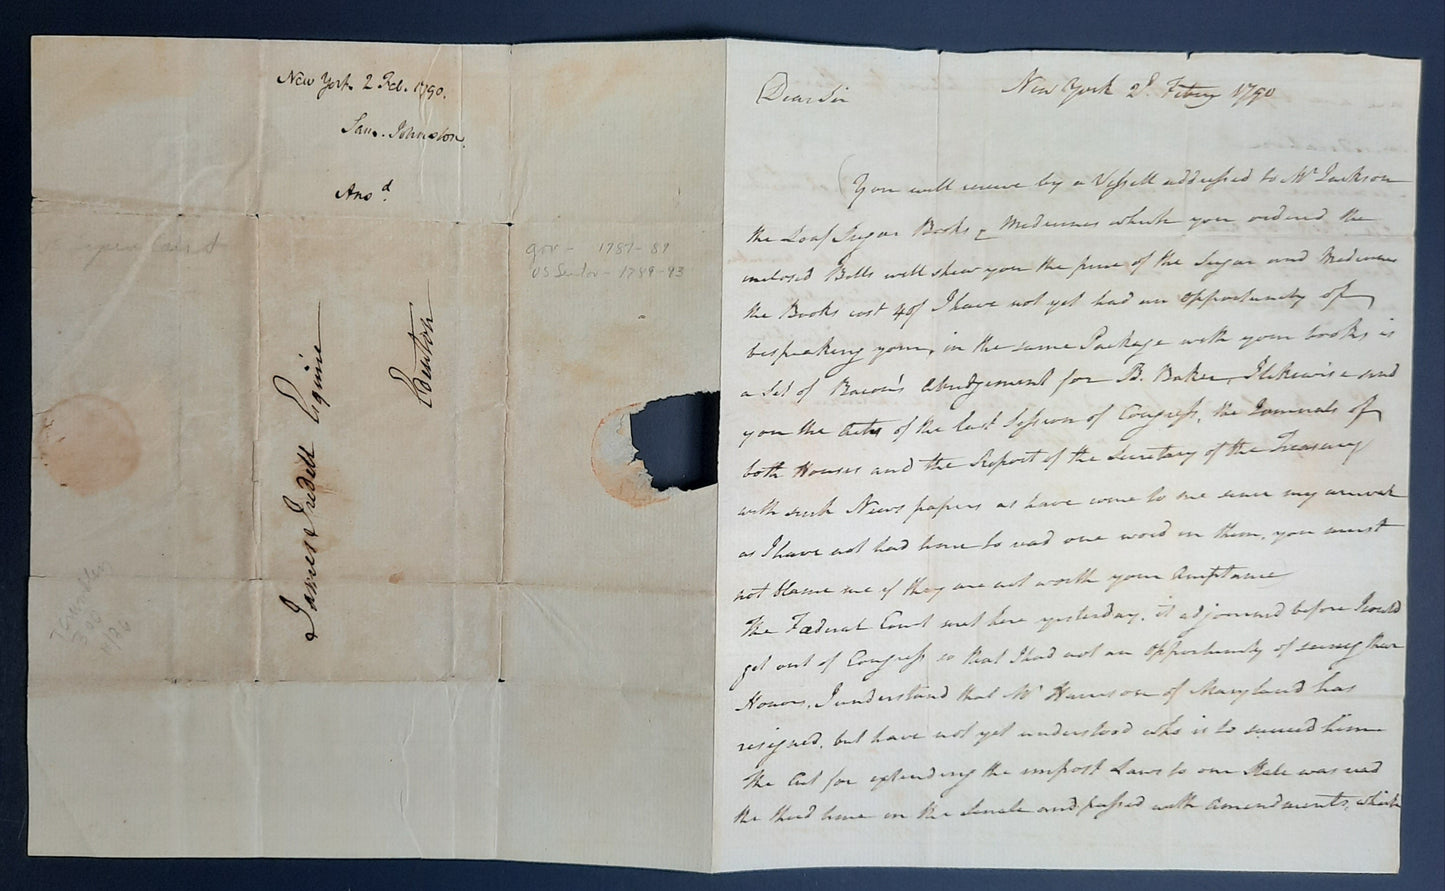 New York 2 Feb. 1790.
Sam. Johnston.
Ansd.
gov - 1787-89
US Senator - 1789-93
James Iredell Esquire
Edenton
Dear Sir
New York 2d. Febry 1790
You will receive by a Vessell addressed to Mr Jackson
the Loaf Sugar Books & Medicines which you ordered the
inclosed Bills will shew you the price of the Sugar and Medicines
the Books cost 40/ I have not yet had an opportunity of
bespeaking your, in the same Package with your books is
a Set of Bacon's Abridgement for B. Baker, I likewise send
you the Acts of the last Session of Congress, the Journals of
both Houses and the Report of the Secretary of the Treasury
with such News papers as have come to me since my arrival
as I have not had time to read one word in them, you must
not blame me if they are not worth your acceptance
The Fœderal Court met here yesterday, it adjourned before I could
get out of Congress so that I had not an opportunity of seeing their
Honors, I understand that Mr Harrison of Maryland has
resigned, but have not yet understood who is to succeed him
The Act for extending the impost Laws to our State was read
the third time in the Senate and passed with amendments, which